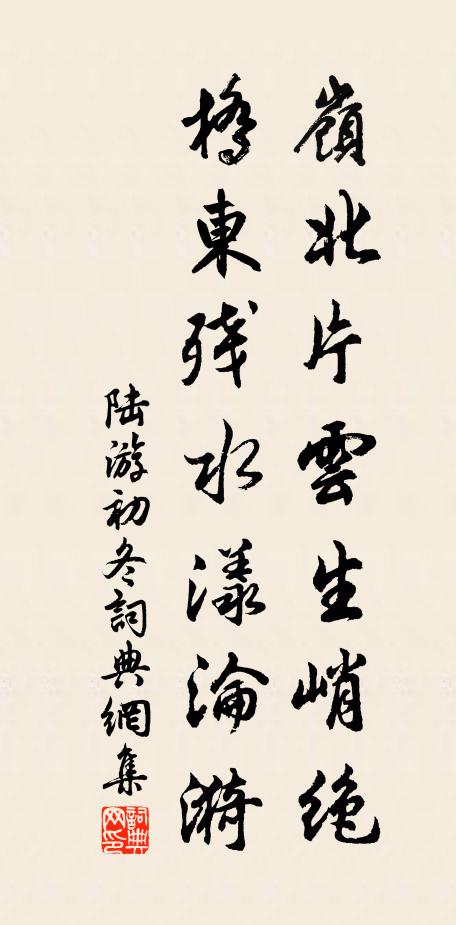 嶺北片雲生峭絶
橋東残水漾淪漪
陆游初冬詞典網集
詞典网印